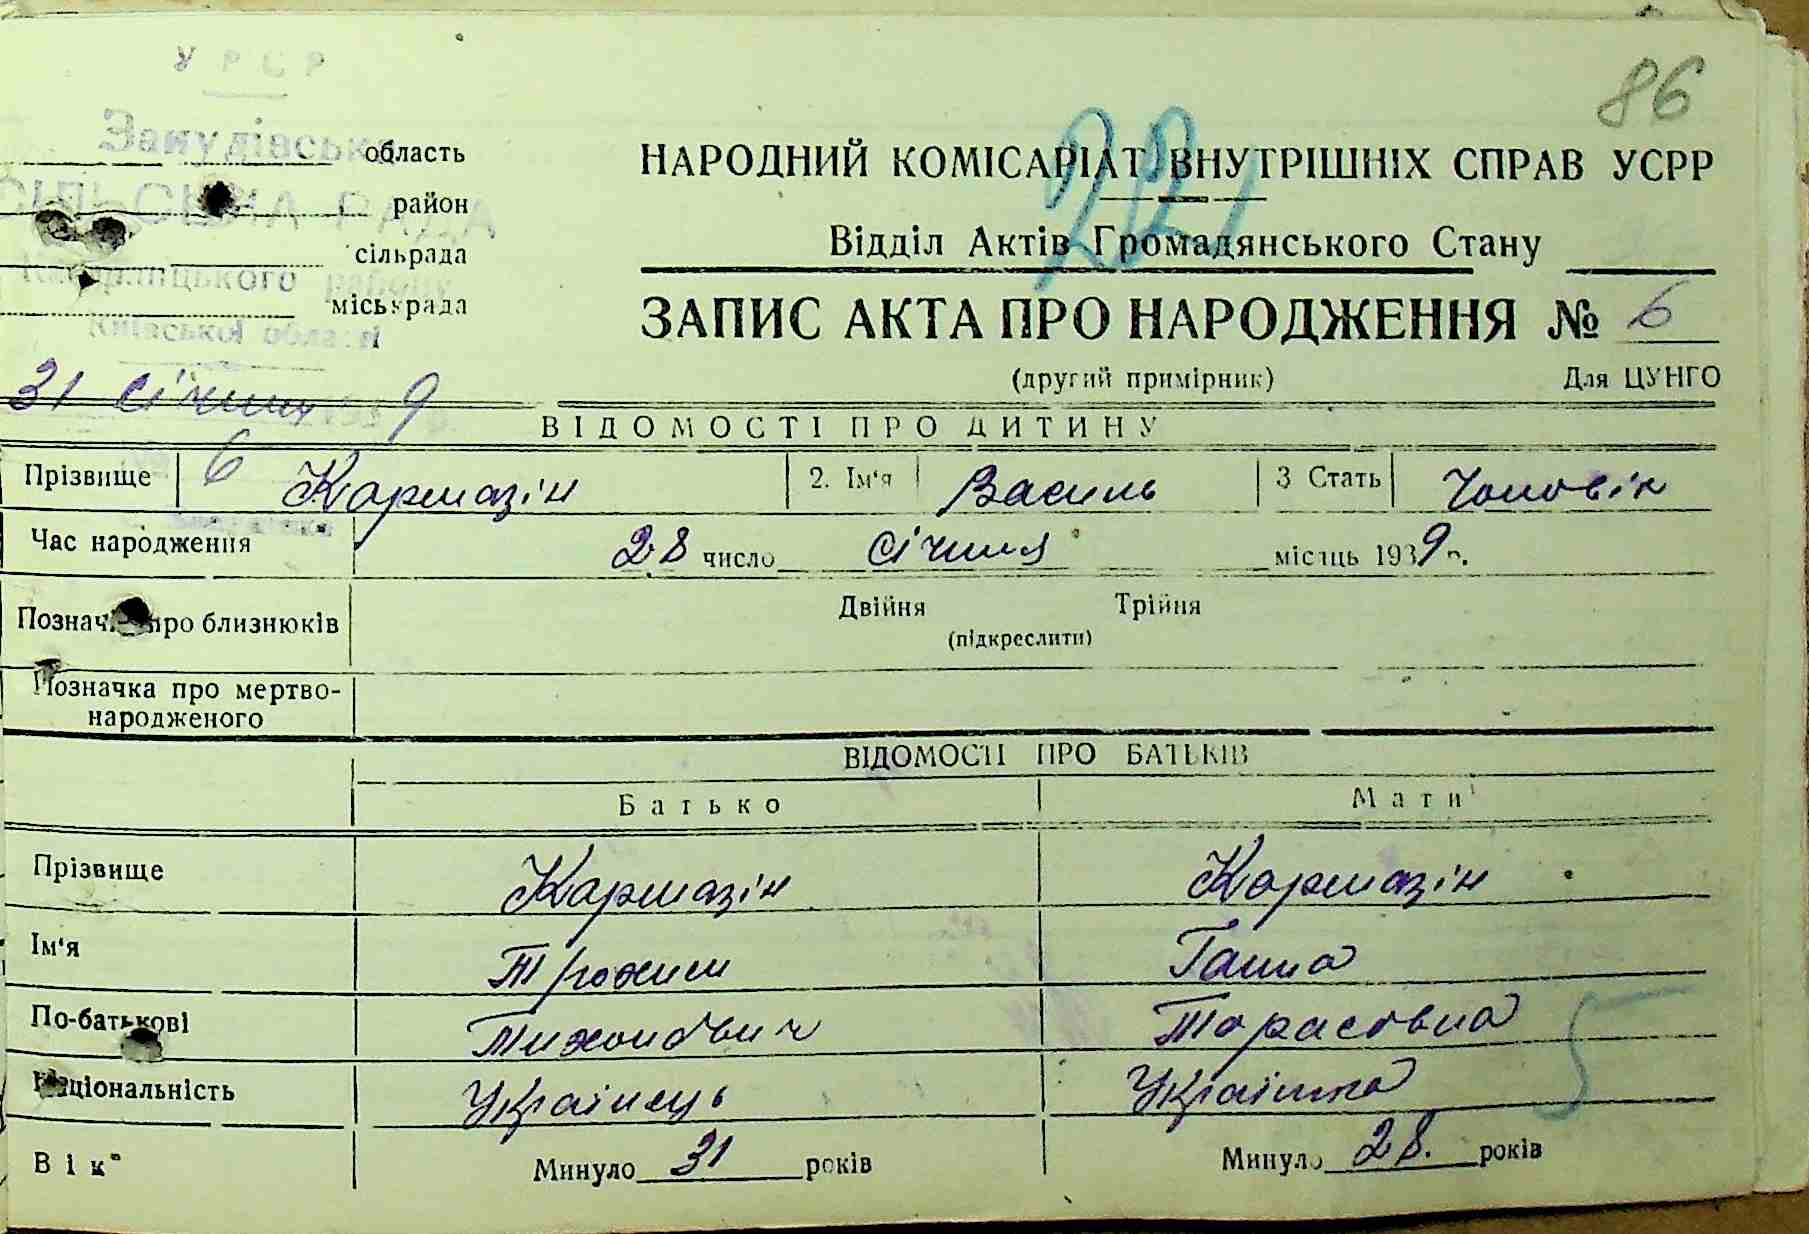 УРСР
86
область
НАРОДНИЙ КОМІСАРІАТ ВНУТРІШНІХ СПРАВ УСРР
221
СІЛЬСЬКА РАДА
район
Відділ Актів Громадянського Стану
сільрада
Кагарлицького району
міськрада
ЗАПИС АКТА ПРО НАРОДЖЕННЯ № 6
Київської області
(другий примірник) Для ЦУНГО
31 Січння 1939
ВІДОМОСТІ ПРО ДИТИНУ
6
Прізвище Кармазін 2. Ім'я Василь 3 Стать Чоловік
Час народження 28 число Січння місяць 1939 р.
Позначка про близнюків Двійня Трійня
(підкреслити)
Позначка про мертво-
народженого
ВІДОМОСТІ ПРО БАТЬКІВ
Батько Мати
Прізвище Кармазін Кармазін
Ім'я Трохим Ганна
По-батькові Тихонович Тарасовна
Національність Українець Українка
5
Вік Минуло 31 років Минуло 28. років